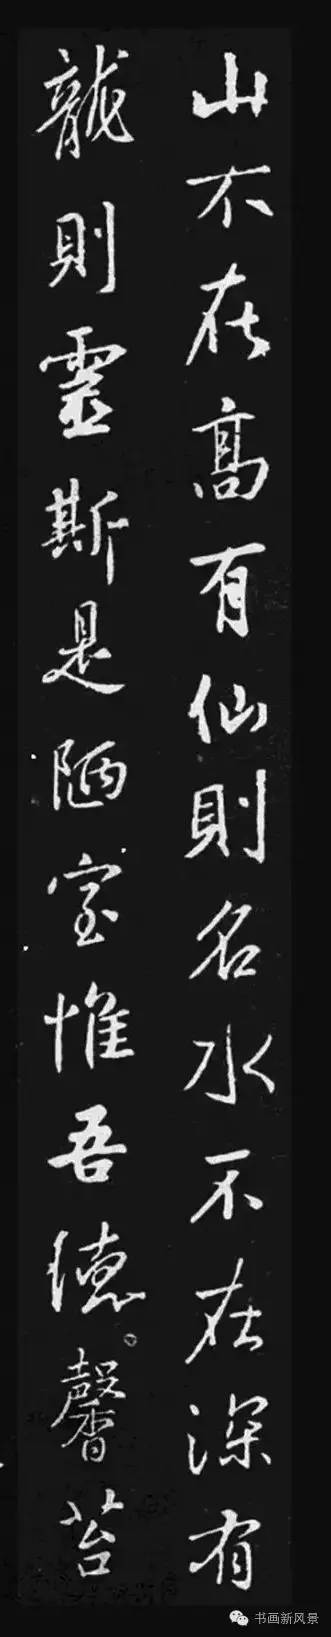 山不在高有仙則名水不在深有
龍則靈斯是陋室惟吾德馨苔
书画新风景